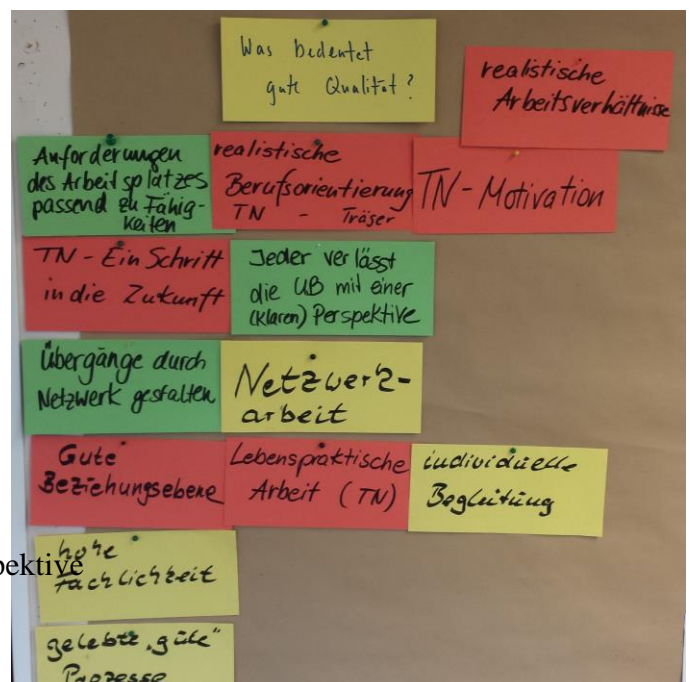 Was bedeutet
gute Qualität?
realistische
Arbeitsverhältnisse
Anforderungen
des Arbeitsplatzes
passend zu Fähig-
keiten
realistische
Berufsorientierung
TN - Träger
TN-Motivation
TN - Ein Schritt
in die Zukunft
Jeder verlässt
die UB mit einer
(klaren) Perspektive
Übergänge durch
Netzwerk gestalten
Netzwerk-
arbeit
Gute
Beziehungsebene
Lebenspraktische
Arbeit (TN)
individuelle
Begleitung
pektive
hohe
Fachlichkeit
gelebte „gute“
Prozesse